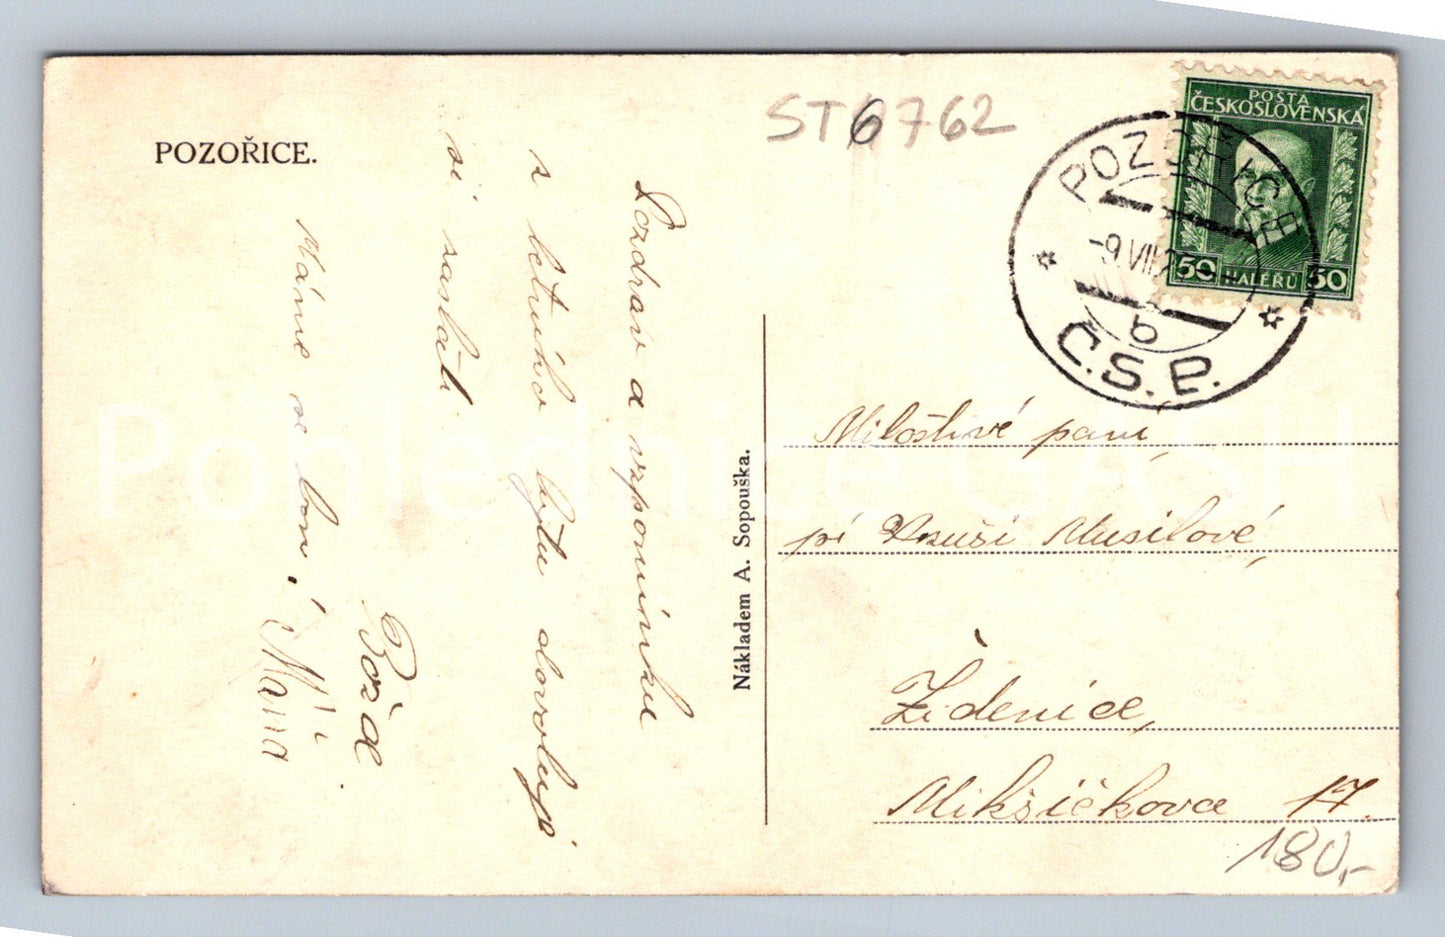 POZOŘICE.
ST6762
POŠTA
ČESKOSLOVENSKÁ
50 HALÉŘŮ 50
POZOŘICE
-9.VII.2
b
Č.S.P.
Pozdrav a vzpomínku
z letního bytu dovoluji
si zaslati.
Máme se tam
Boža
Máňa
Nákladem A. Sopouška.
Milostivé paní,
pí Musilové,
Židenice,
Mikšíčkova 17.
180,-
Pohlednice GASH